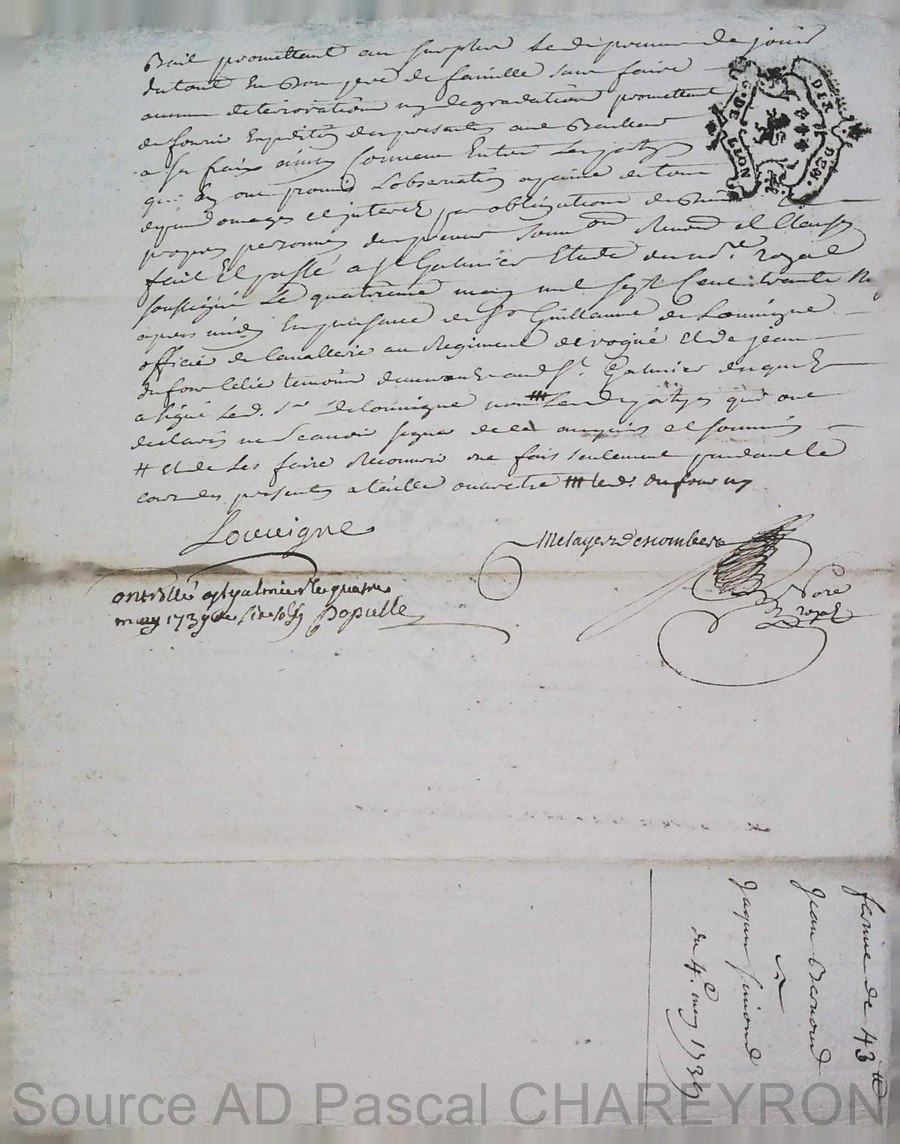 Bail promettant au surplus led. preneur de jouir
du tout en bon pere de famille sans faire
aucune deterioration ny degradation promettant
de fournir expedition des presentes aud. Bailleur
a ses frais ainsy convenu entre les partyes
qui en ont promis l'observation a peine de tous
depens domages et interez par obligations de
propres personnes du preneur soum.on renon. et clauses
fait et passé a St Galmier Etude du no.re royal
soussigné le quatrieme may mil sept cent trente
apres midy en presence de Sr Guillaume de Louvigne
officier de cavallerie au Regiment de vogué et de jean
dufour temoins demeurant aud St. Galmier desquels
a signé led. Sr de Louvigne non les partyes qui ont
declaré ne scavoir signer de ce enquis et sommés
# et de les faire Recouvrir une fois seulement pendant le
cours des presentes a taille ouverte # led. dufour ny
Louvigne
Metayer Descombes
No.re
royal
ontrollé a St galmier le quatre
may 1739 Populle
DE LION
DIX DEN.
ferme de 43 tt
Jean
a
Jaques Simond
du 4.e may 1739
Source AD Pascal CHAREYRON